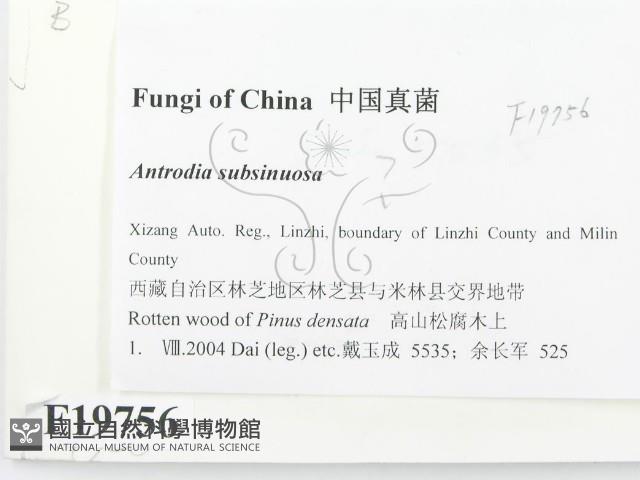 B
Fungi of China 中国真菌
F19756
Antrodia subsinuosa
Xizang Auto. Reg., Linzhi, boundary of Linzhi County and Milin
County
西藏自治区林芝地区林芝县与米林县交界地带
Rotten wood of Pinus densata 高山松腐木上
1. Ⅷ.2004 Dai (leg.) etc.戴玉成 5535；余长军 525
F19756
國立自然科學博物館
NATIONAL MUSEUM OF NATURAL SCIENCE